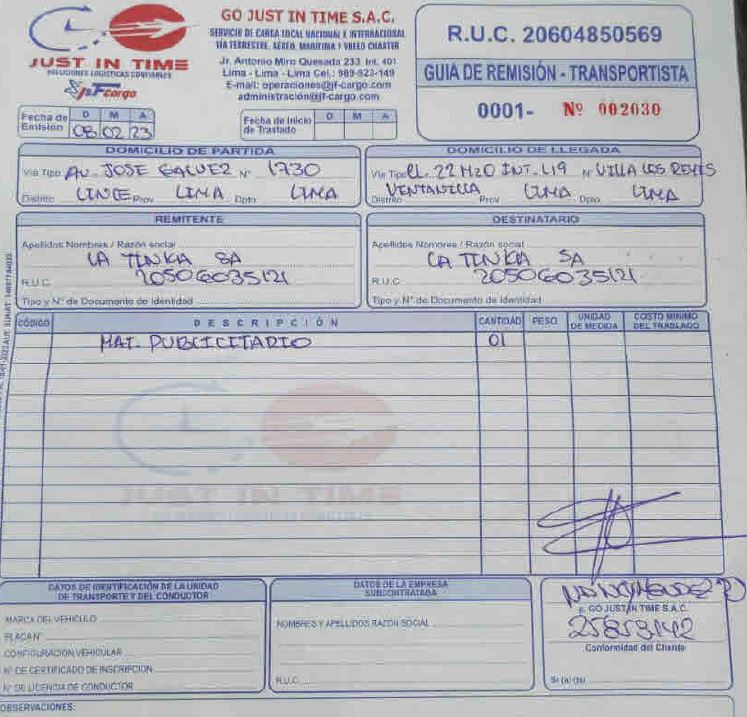 GO JUST IN TIME S.A.C.
SERVICIO DE CARGA LOCAL NACIONAL E INTERNACIONAL
VIA TERRESTRE, AÉREO, MARITIMA Y VUELO CHARTER
Jr. Antonio Miro Quesada 233 Int. 401
Lima - Lima - Lima Cel.: 989-923-149
E-mail: operaciones@jf-cargo.com
administración@jf-cargo.com
JUST IN TIME
SOLUCIONES LOGISTICAS CONFIABLES
J&F cargo
R.U.C. 20604850569
GUIA DE REMISIÓN - TRANSPORTISTA
0001- Nº 002030
Fecha de Emisión D M A
08 02 23
Fecha de Inicio de Traslado D M A
DOMICILIO DE PARTIDA
Via Tipo AV. JOSE GALVEZ Nº 1730
Distrito LINCE Prov. LIMA Dpto. LIMA
DOMICILIO DE LLEGADA
Via Tipo CL. 22 MZO INT. L19 N VILLA LOS REYES
Distrito VENTANILLA Prov. LIMA Dpto. LIMA
REMITENTE
Apellidos Nombres / Razón social
LA TINKA SA
R.U.C. 20506035121
Tipo y Nº de Documento de Identidad
DESTINATARIO
Apellidos Nombres / Razón social
LA TINKA SA
R.U.C. 20506035121
Tipo y Nº de Documento de Identidad
CÓDIGO DESCRIPCIÓN CANTIDAD PESO UNIDAD DE MEDIDA COSTO MINIMO DEL TRASLADO
MAT. PUBLICITARIO 01
JUST IN TIME
DATOS DE IDENTIFICACIÓN DE LA UNIDAD
DE TRANSPORTE Y DEL CONDUCTOR
MARCA DEL VEHICULO
PLACA Nº
CONFIGURACIÓN VEHICULAR
Nº DE CERTIFICADO DE INSCRIPCION
Nº DE LICENCIA DE CONDUCTOR
DATOS DE LA EMPRESA
SUBCONTRATADA
NOMBRES Y APELLIDOS RAZÓN SOCIAL
R.U.C.
p. GO JUST IN TIME S.A.C.
25853142
Conformidad del Cliente
Sr (a) (ta)
OBSERVACIONES: